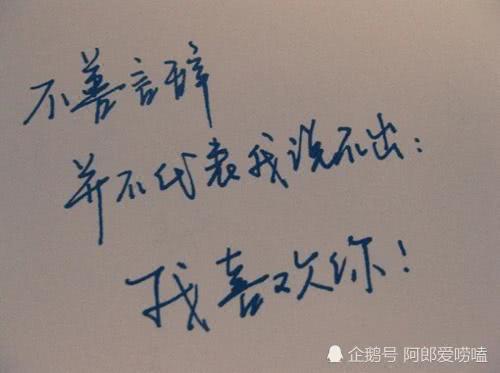 不善言辞
并不代表我说不出：
我喜欢你！
企鹅号 阿郎爱唠嗑